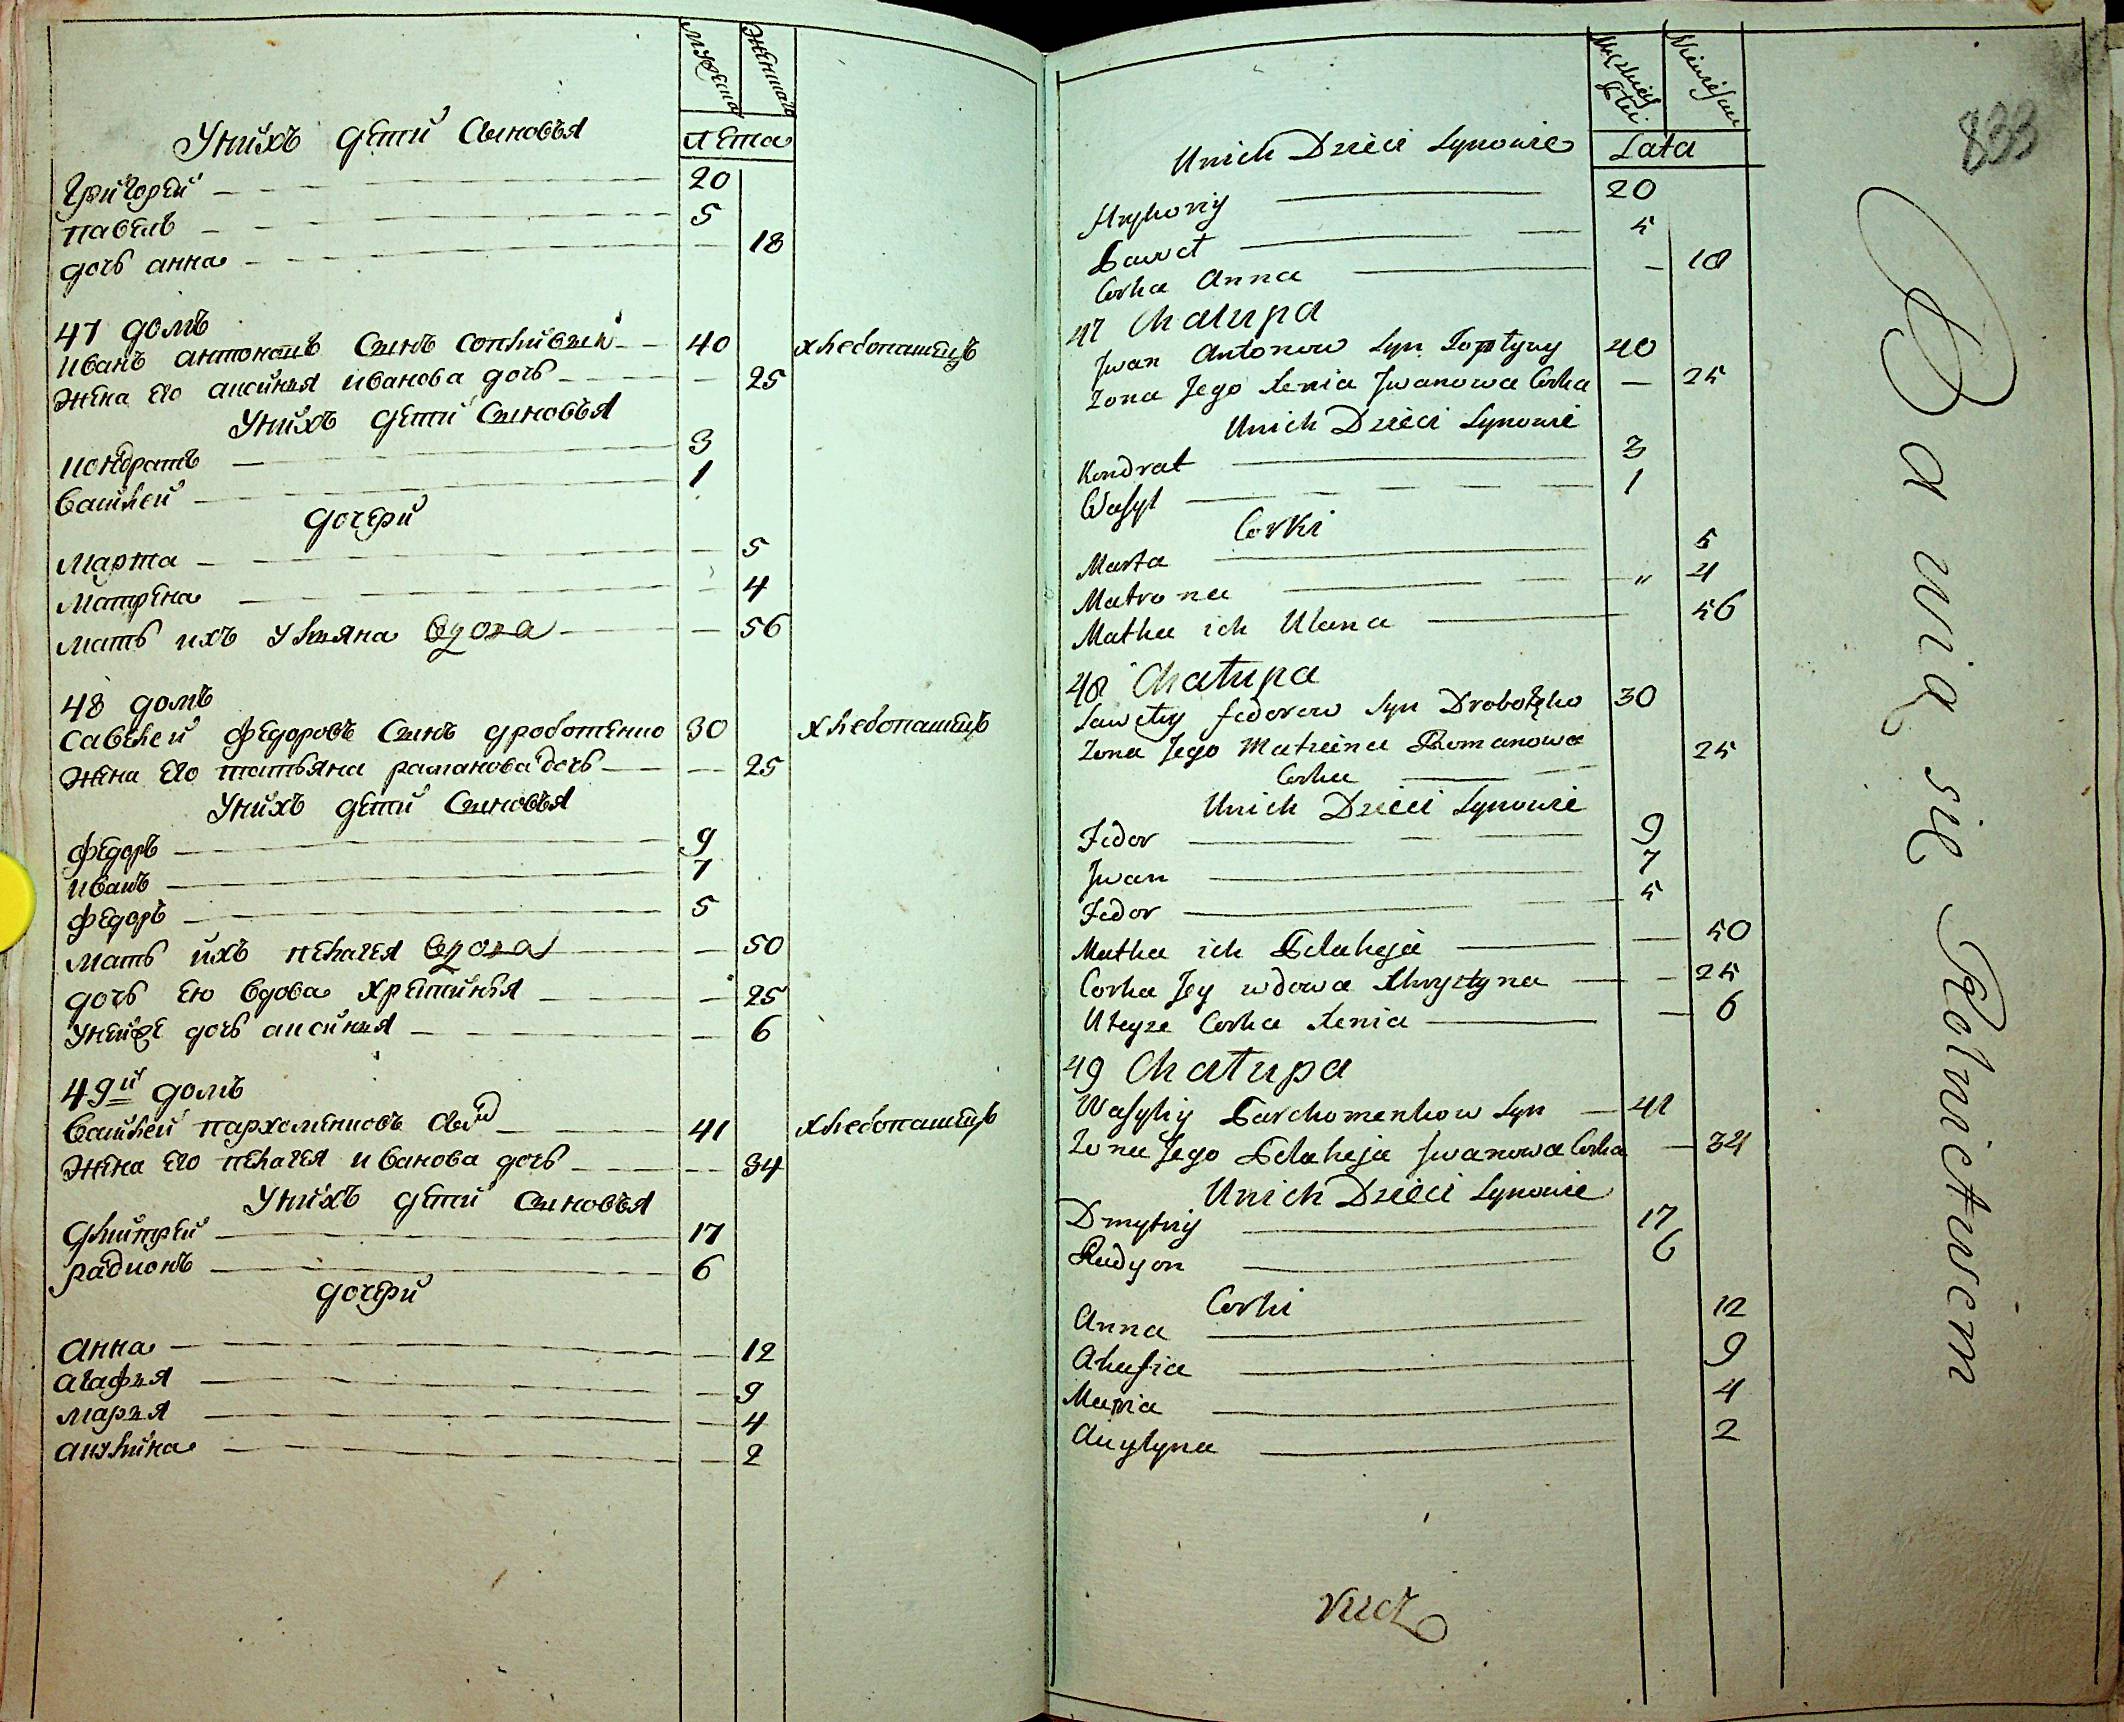 мужеска
женска
лета
У нихъ дети Сыновья
Григорей 20
павелъ 5
дочь анна 18
47 домъ
иванъ антоновъ Сынъ 40 хлебопашецъ
жена его аксинья иванова дочь 25
У нихъ дети Сыновья
кондратъ 3
василей 1
дочери
марта 5
матрена 4
мать ихъ ульяна вдова 56
48 домъ
савелей федоровъ Сынъ дроботенко 30 хлебопашецъ
жена его татьяна раманова дочь 25
У нихъ дети Сыновья
федоръ 9
иванъ 7
федоръ 5
мать ихъ пелагея вдова 50
дочь ею вдова хрестинья 25
У нейже дочь аксинья 6
49й домъ
василей пархоменковъ Сынъ 41 хлебопашецъ
жена его пелагея иванова дочь 34
У нихъ дети Сыновья
дмитрей 17
радионъ 6
дочери
анна 12
агафья 9
марья 4
акулина 2
Lata
Unich Dzieci Synowie
Hryhoriy 20
Pawet 5
Corka Anna 18
47 Chatupa
Jwan Antonow Syn 40
Zona Jego Xenia Jwanowa Corka 25
Unich Dzieci Synowie
Kondrat 3
Wasyl 1
Corki
Marta 5
Matrona " 4
Matka ich Ulana 56
48 Chatupa
Saweliy Fedorow Syn Drobotęko 30
Zona Jego Romanowa 25
Corka
Unich Dzieci Synowie
Fedor 9
Jwan 7
Fedor 5
Matka ich Pelaheja 50
Corka Jey wdowa Chrystyna 25
Uteyze Corka Xenia 6
49 Chatupa
Wasyliy Parchomenkow Syn 41
Zona Jego Pelaheja Jwanowa Corka 34
Unich Dzieci Synowie
Dmytriy 17
Rudyon 6
Corki
Anna 12
Ahafia 9
Maria 4
Akulyna 2
833
Bawią się Rolnictwem